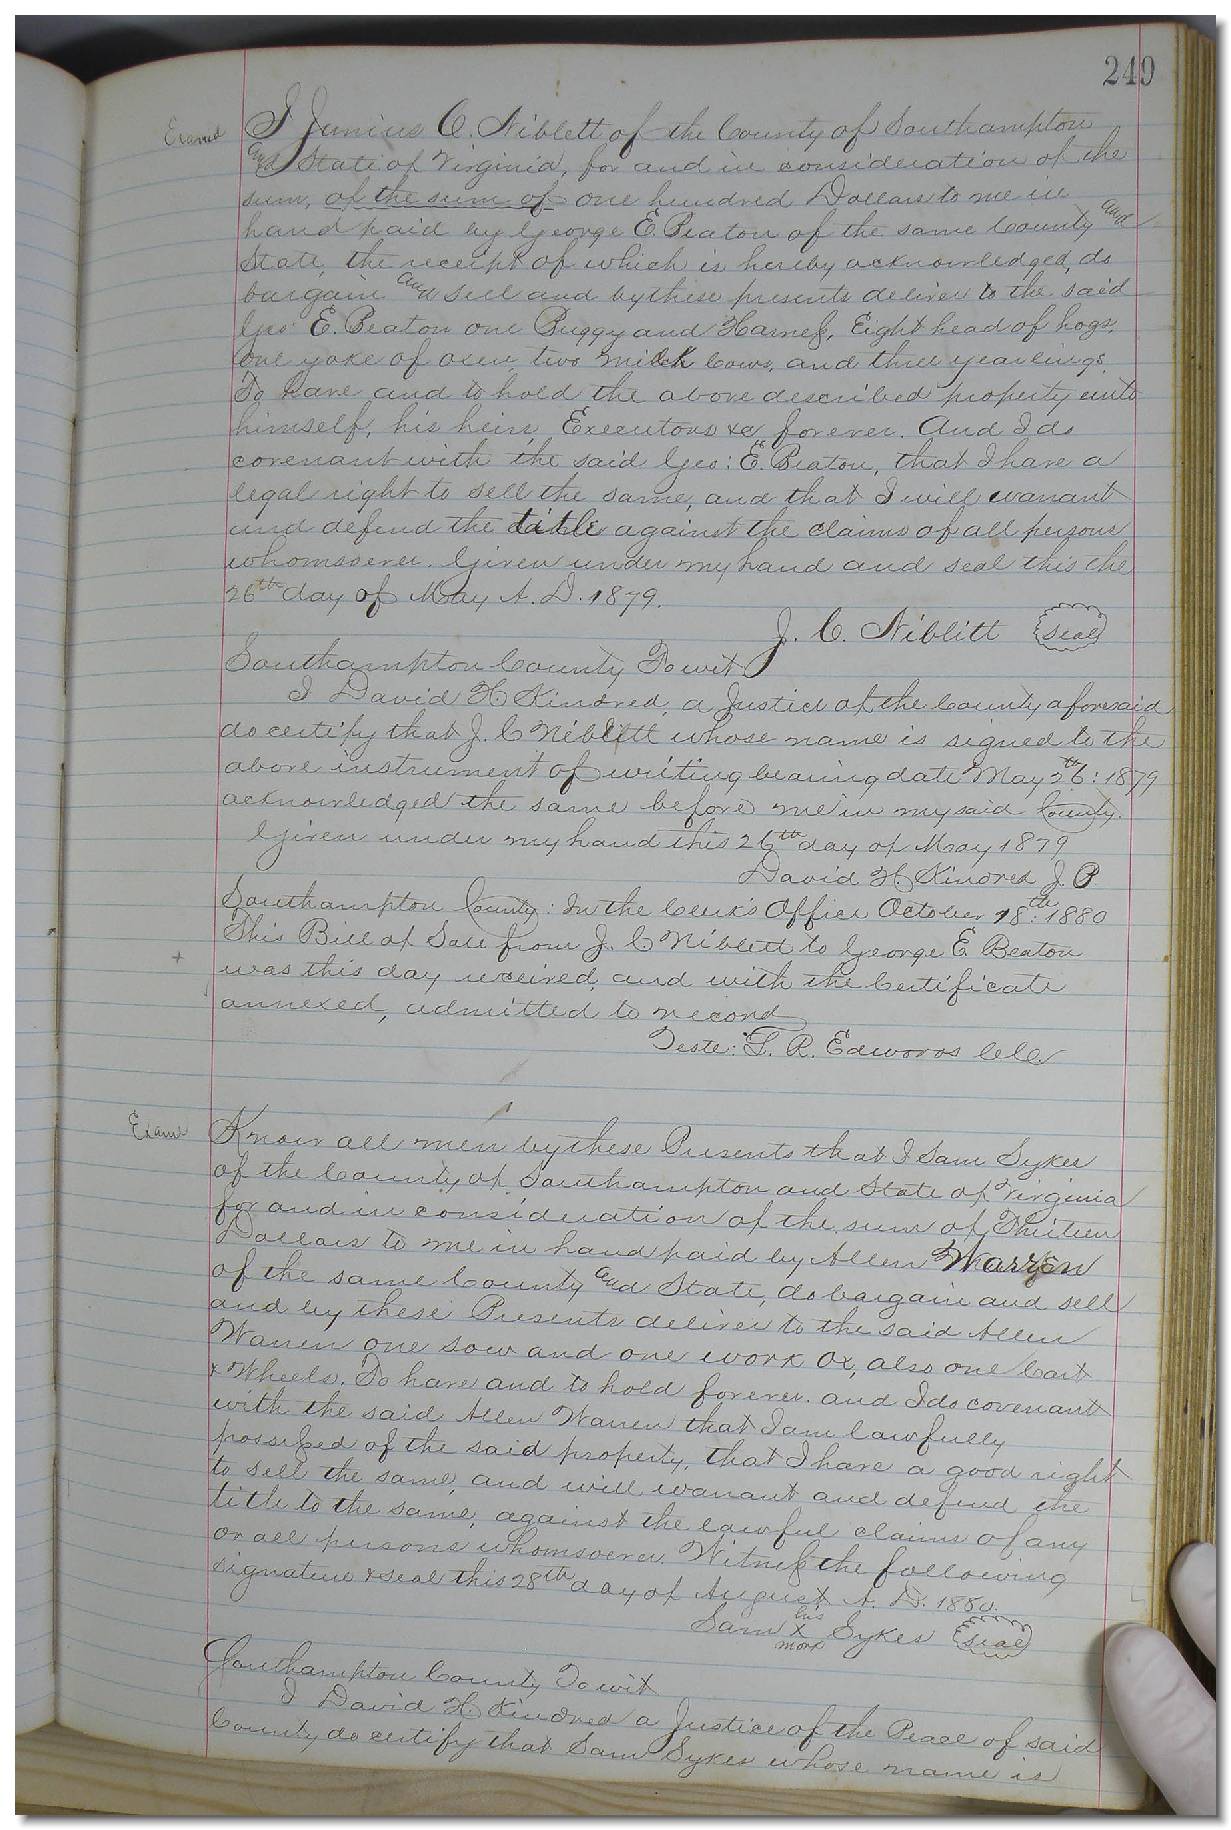 249
Examd
I Junius C. Niblett of the County of Southampton
and State of Virginia, for and in consideration of the
sum, of the sum of one hundred Dollars to me in
hand paid by George E. Beaton of the same County and
State, the receipt of which is hereby acknowledged, do
bargain and sell and by these presents deliver to the said
Geo E. Beaton one Buggy and Harness, Eight head of hogs,
one yoke of oxen, two milck Cows, and three yearlings.
To have and to hold the above described property unto
himself, his heirs, Executors &c forever. And I do
covenant with the said Geo: E. Beaton, that I have a
legal right to sell the same, and that I will warrant
and defend the title against the claims of all persons
whomsoever. Given under my hand and seal this the
26th day of May A. D. 1879.
J. C. Niblett Seal
Southampton County To wit
I David H. Kindred, a Justice of the County aforesaid
do certify that J. C Niblett whose name is signed to the
above instrument of writing bearing date May 26th: 1879
acknowledged the same before me in my said County.
Given under my hand this 26th day of May 1879
David H. Kindred J. P.
Southampton County: In the Clerk's Office October 18th: 1880
This Bill of Sale from J. C. Niblett to George E Beaton
was this day received, and with the Certificate
annexed, admitted to record
Teste: L. R. Edwards Clk
Exam
Know all men by these Presents that I Sam Sykes
of the County of Southampton and State of Virginia
for and in consideration of the sum of Thirteen
Dollars to me in hand paid by Allen Warren
of the same County and State, do bargain and sell
and by these Presents deliver to the said Allen
Warren one sow and one work Ox, also one Cart
& Wheels. To have and to hold forever. and I do covenant
with the said Allen Warren that I am lawfully
possessed of the said property, that I have a good right
to sell the same, and will warrant and defend the
title to the same, against the lawful claims of any
or all persons whomsoever. Witness the following
signature & seal this 28th day of August A. D. 1880.
his
Sam X Sykes Seal
mark
Southampton County To wit
I David H. Kindred a Justice of the Peace of said
County do certify that Sam Sykes whose name is